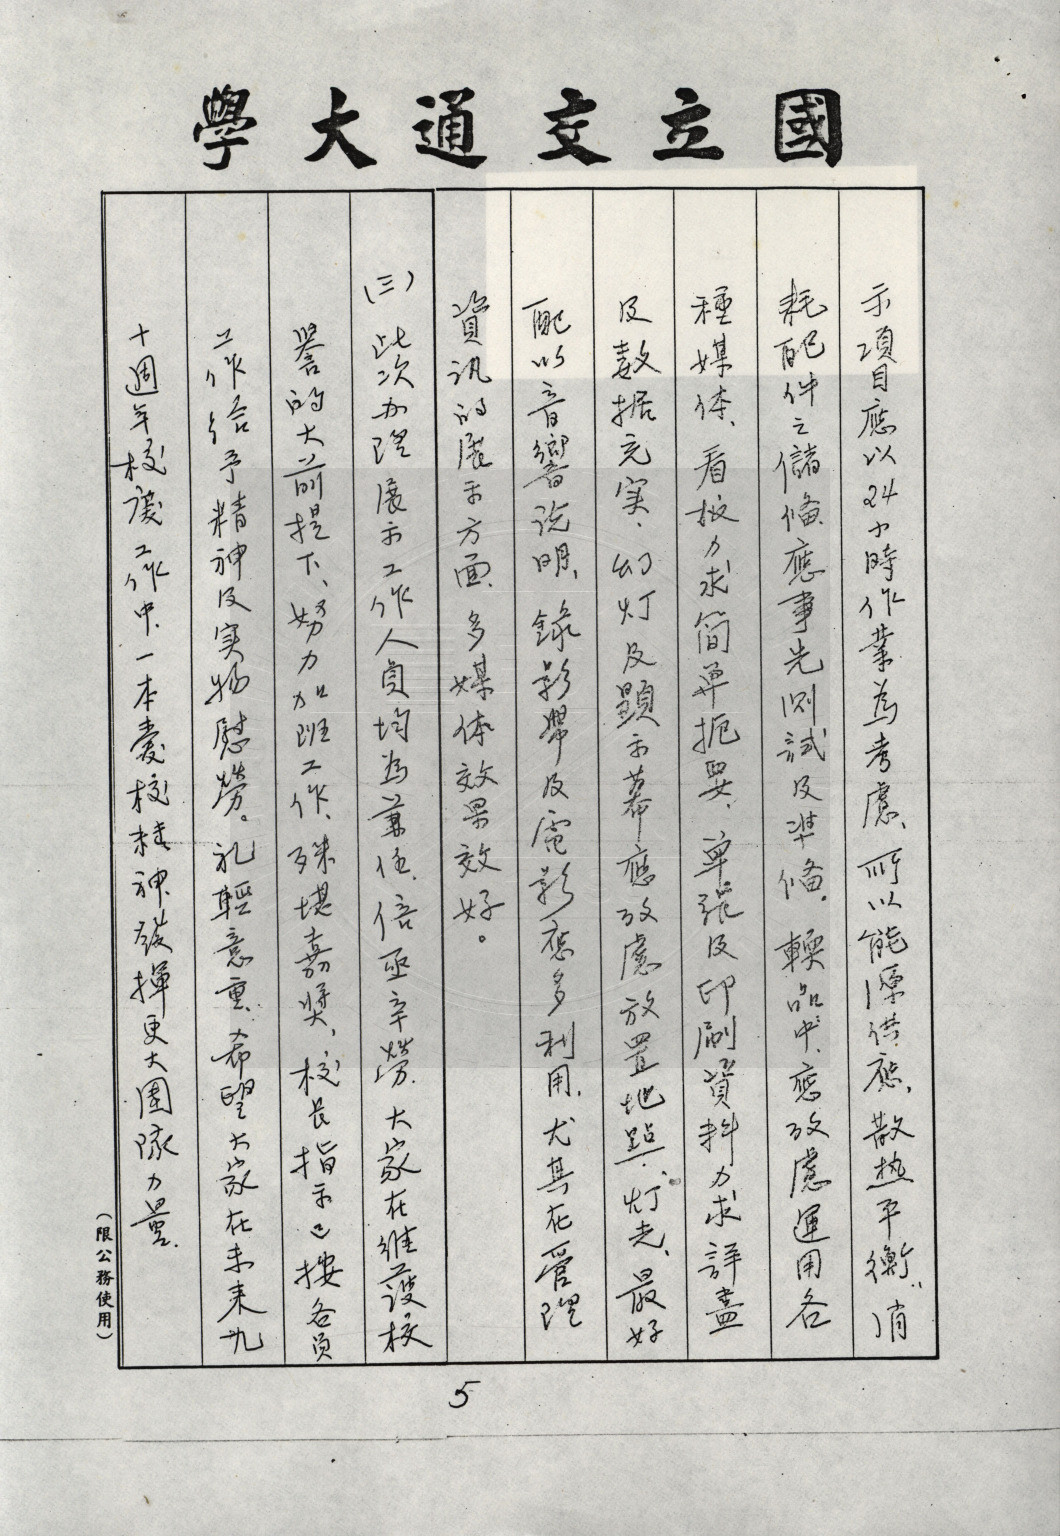 國立交通大學
示項目應以24小時作業為考慮、所以能源供應、散热平衡、消
耗配件之儲備應事先測試及準備。軟品中、應改慮運用各
種媒体、看板力求簡单扼要、单張及印刷資料力求詳盡
及数据充実、幻灯及顯示幕應改慮放置地點、灯光、最好
配以音響説明、錄影帶及電影應多利用、尤其在管理
資訊的展示方面、多媒体效果效好。
(三) 此次办理展示工作人員均為兼任、倍亟辛勞、大家在維護校
譽的大前提下、努力加班工作、殊堪嘉奬、校長指示已按各員
工作给予精神及実物慰勞。礼輕意重、希望大家在未来九
十週年校慶工作中、一本愛校精神、發揮更大團隊力量.
(限公務使用)
5